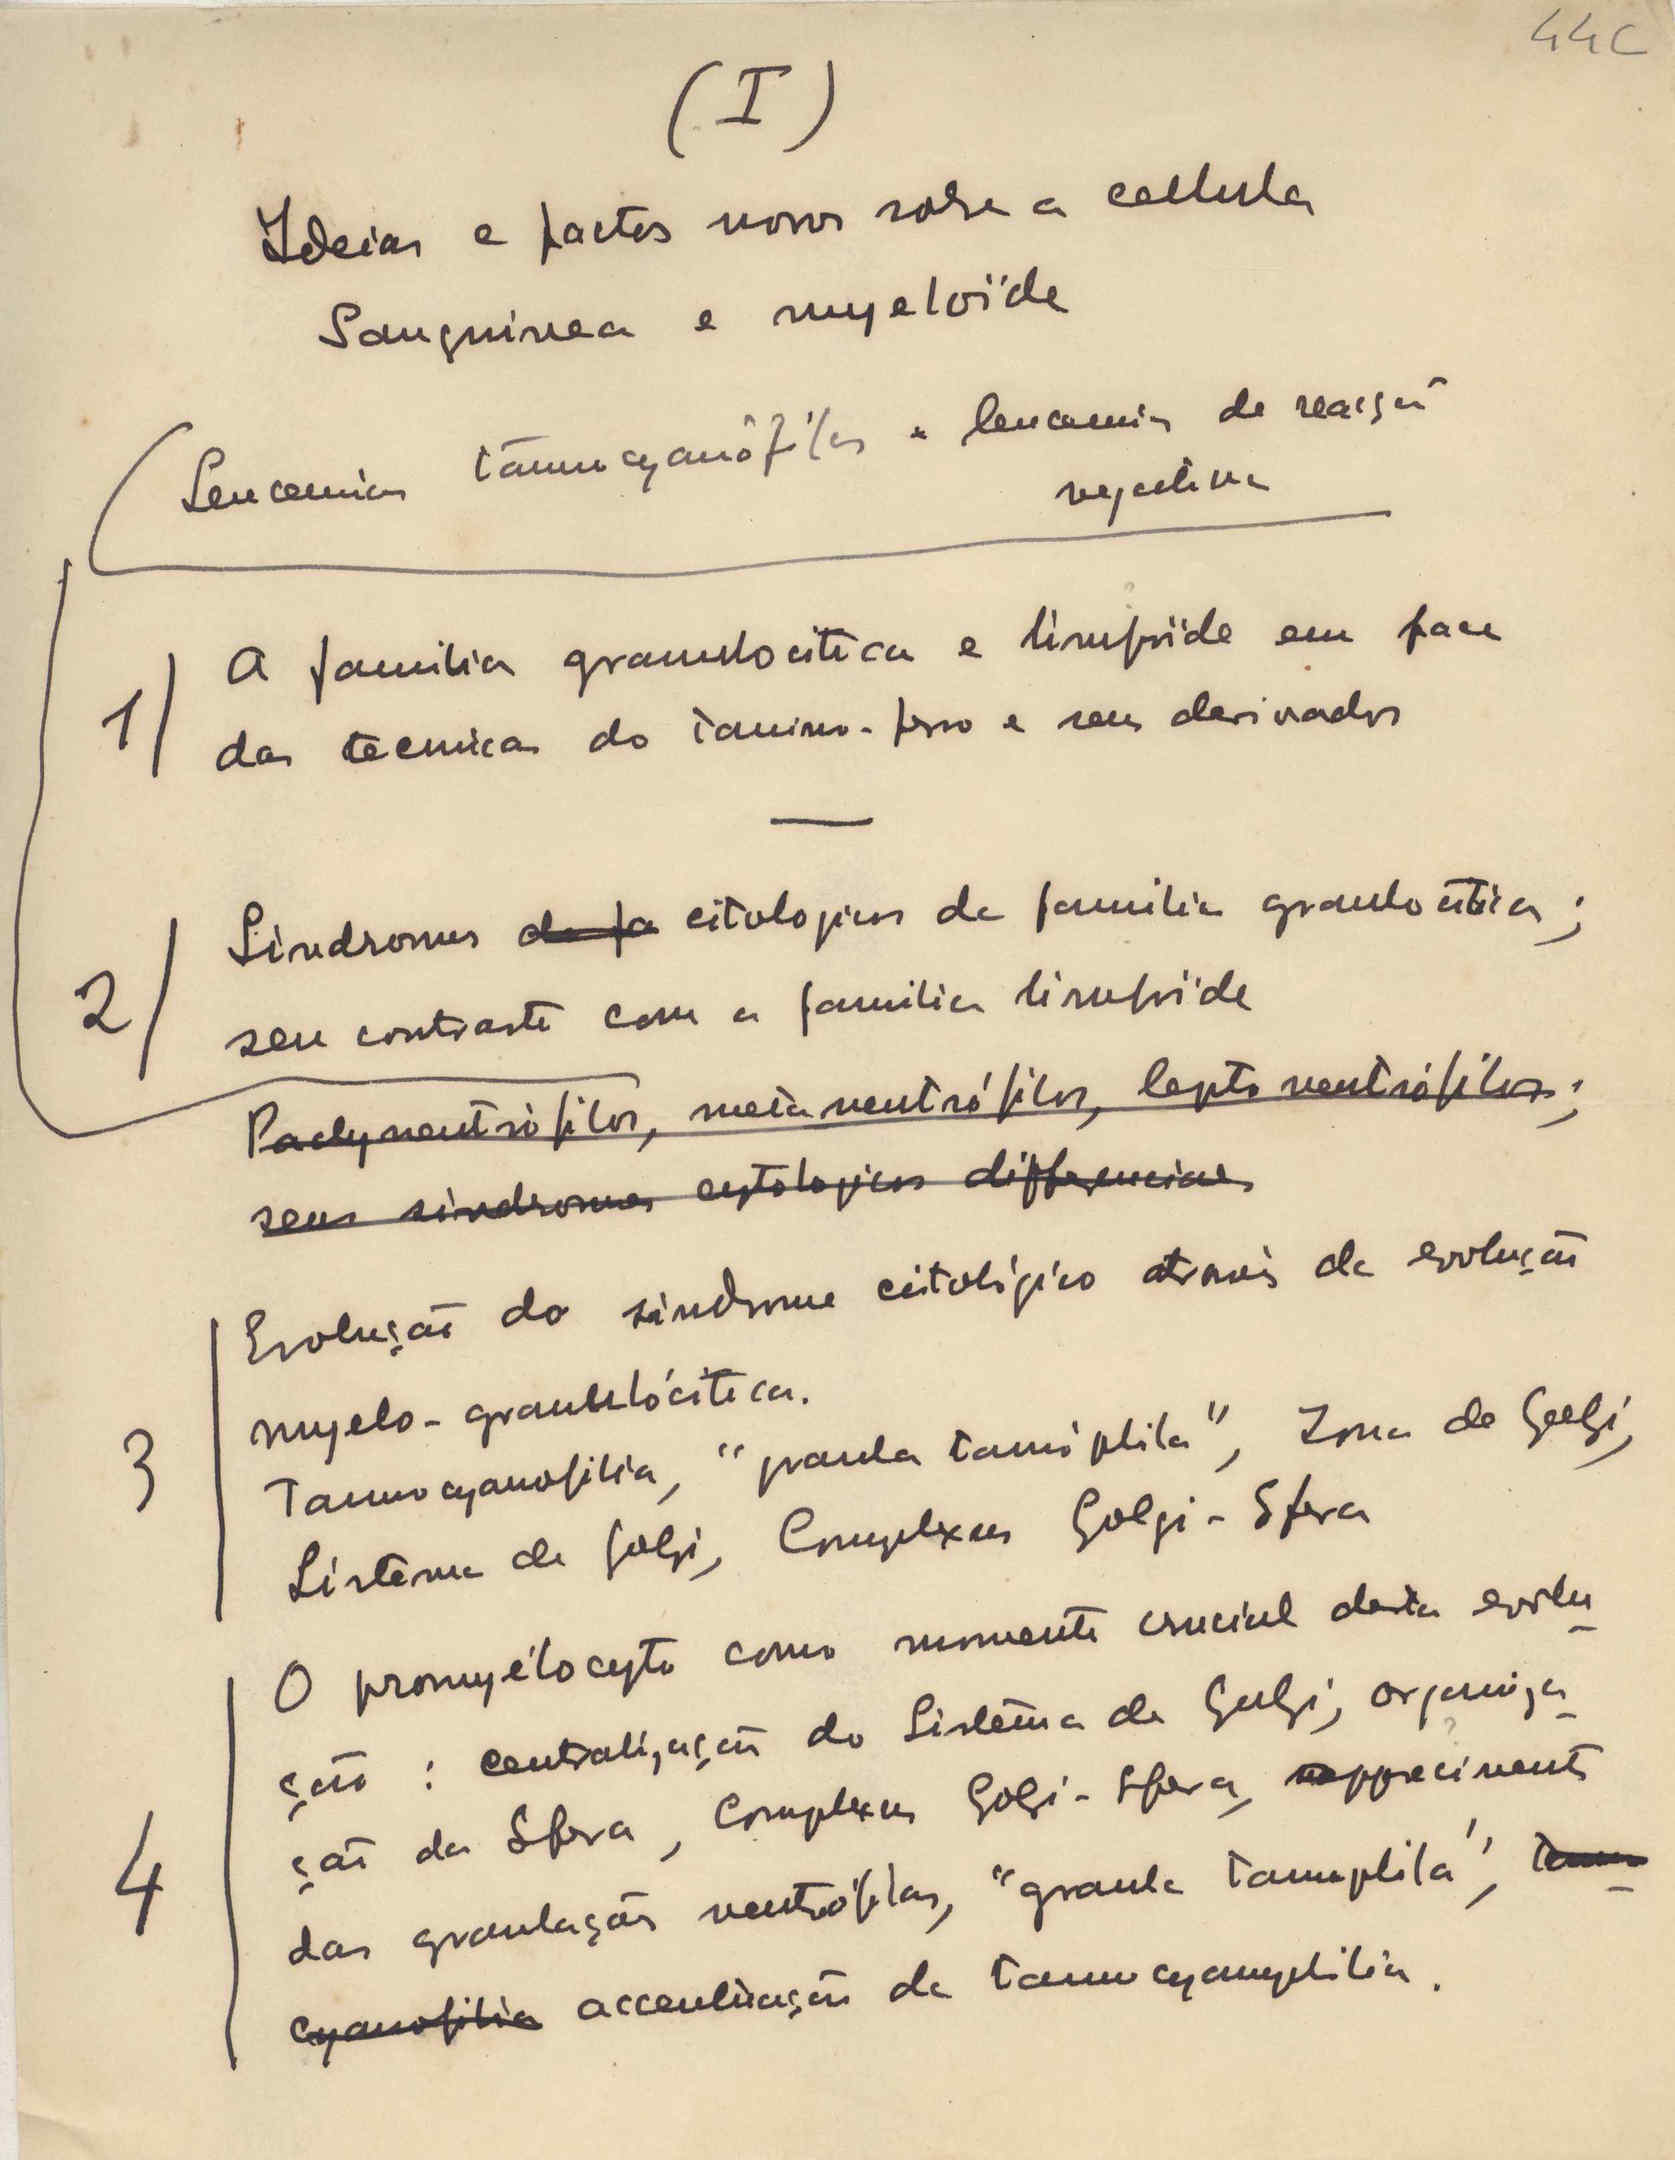 44C
(I)
Ideias e factos novos sobre a cellula
Sanguinea e myeloïde
Leucemias tannocyanófilas e leucemias de reacção
negativa
1) A familia granulocitica e linfoïde em face
das tecnicas do tanino-ferro e seus derivados
2) Sindromes da fa citologicos da familia granulocitica;
seu contraste com a familia linfoïde
Pachyneutrófilos, metaneutrófilos, leptoneutrófilos;
seus sindromes cytologicos differenciaes
Evolução do sindrome citológico através da evolução
myelo-granulócitica.
3 Tannocyanofilia, "granula tannóphila", Zona de Golgi,
Sistema de Golgi, Complexus Golgi-Sfera
O promyélocyto como momento crucial desta evolu
ção : centralização do Sistema de Golgi, organiza
ção da Sfera, Complexus Golgi-Sfera, appareciment
4 das granulações neutrófilas, "granula tannophila", tanno
cyanofilia accentuação da tannocyanophilia.